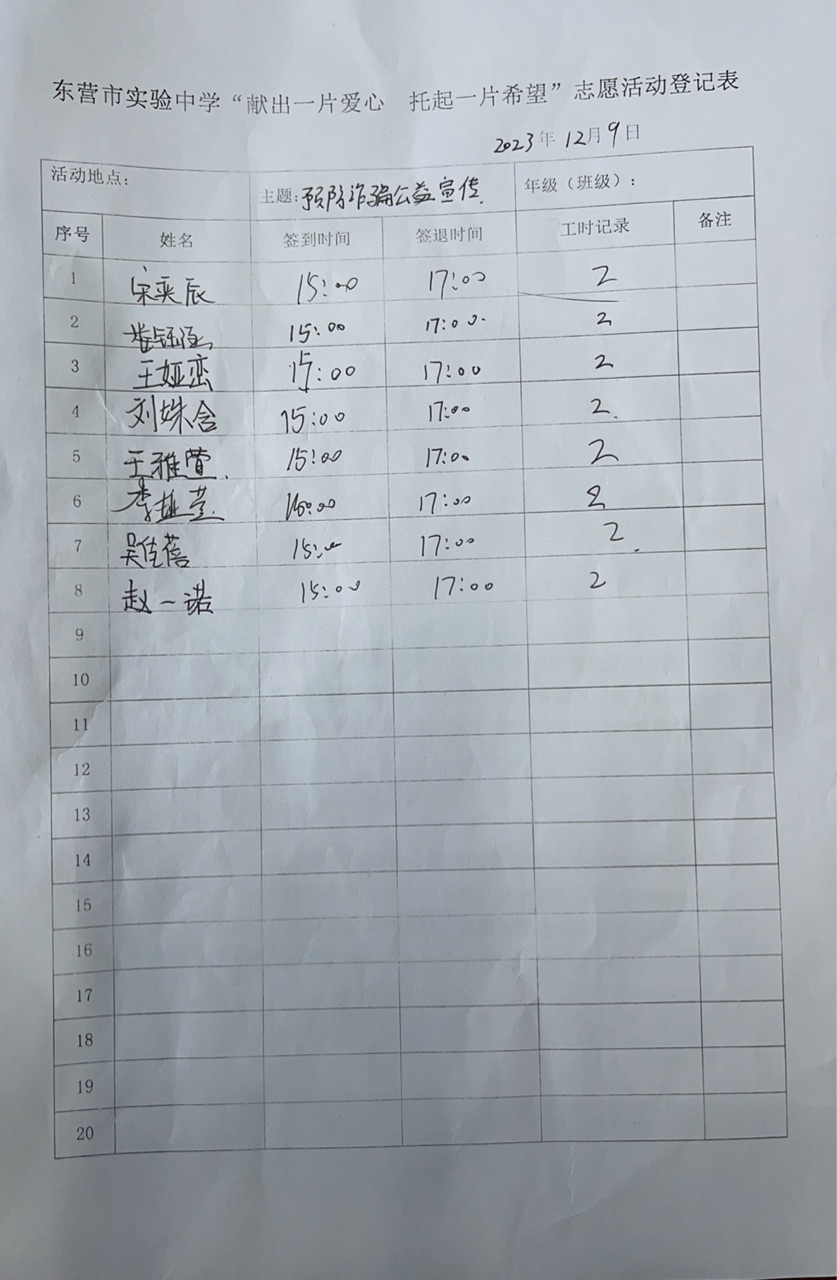 东营市实验中学“献出一片爱心 托起一片希望”志愿活动登记表
2023年12月9日
活动地点： 主题：预防诈骗公益宣传 年级（班级）：
序号 姓名 签到时间 签退时间 工时记录 备注
1 宋奕辰 15:00 17:00 2
2 15:00 17:00 2
3 王娅峦 15:00 17:00 2
4 刘姝含 15:00 17:00 2
5 王雅萱 15:00 17:00 2
6 17:00 2
7 吴佳蓓 15:00 17:00 2
8 赵一诺 15:00 17:00 2
9
10
11
12
13
14
15
16
17
18
19
20